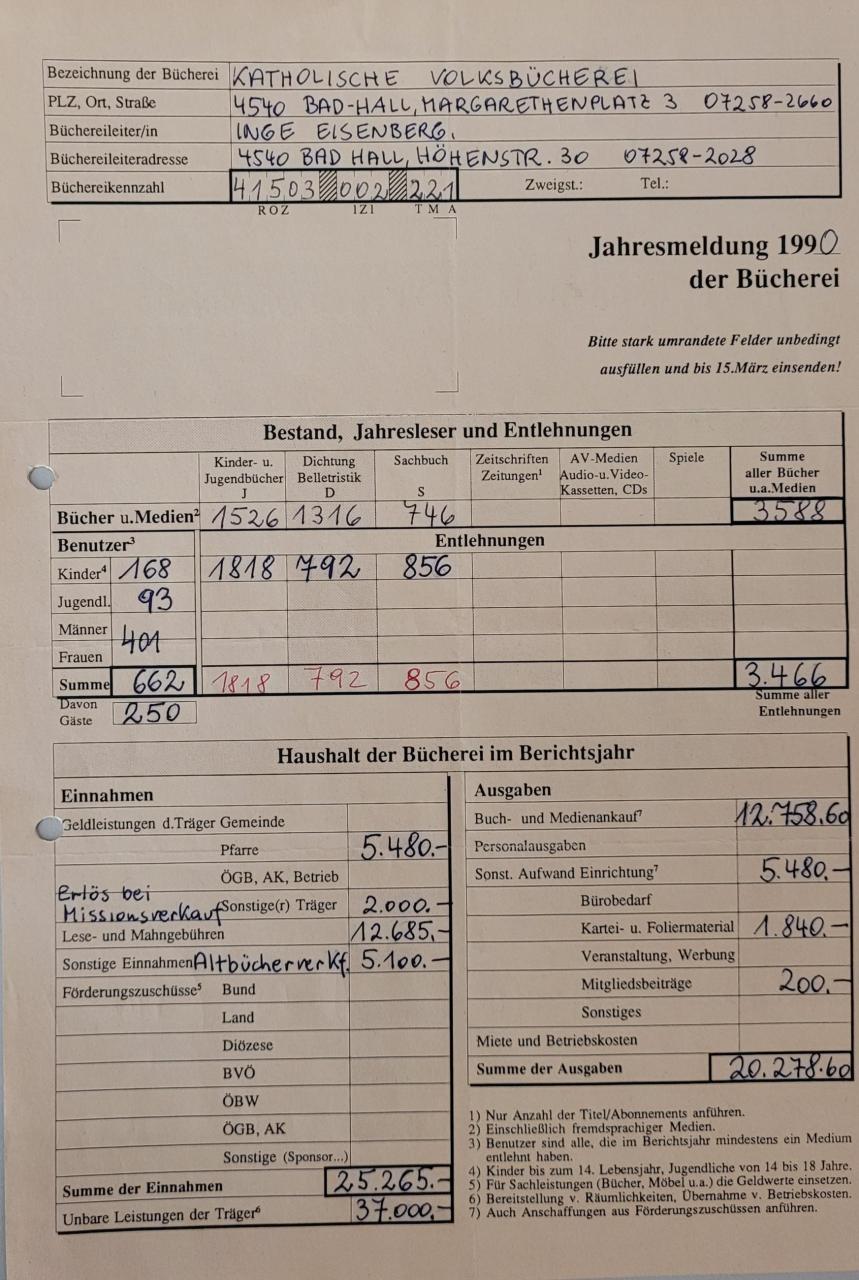 Bezeichnung der Bücherei KATHOLISCHE VOLKSBÜCHEREI
PLZ, Ort, Straße 4540 BAD-HALL, MARGARETHENPLATZ 3 07258-2660
Büchereileiter/in INGE EISENBERG.
Büchereileiteradresse 4540 BAD HALL, HÖHENSTR. 30 07258-2028
Büchereikennzahl 41503 002 221 Zweigst.: Tel.:
ROZ IZI TMA
Jahresmeldung 1990
der Bücherei
Bitte stark umrandete Felder unbedingt
ausfüllen und bis 15.März einsenden!
Bestand, Jahresleser und Entlehnungen
Kinder- u. Jugendbücher J
Dichtung Belletristik D
Sachbuch S
Zeitschriften Zeitungen¹
AV-Medien Audio-u.Video-Kassetten, CDs
Spiele
Summe aller Bücher u.a.Medien
Bücher u.Medien² 1526 1316 746 3588
Benutzer³ Entlehnungen
Kinder⁴ 168 1818 792 856
Jugendl. 93
Männer
401
Frauen
Summe 662 1818 792 856 3.466
Davon Gäste 250
Summe aller Entlehnungen
Haushalt der Bücherei im Berichtsjahr
Einnahmen
Geldleistungen d.Träger Gemeinde
Pfarre 5.480.-
ÖGB, AK, Betrieb
Erlös bei
Missionsverkauf Sonstige(r) Träger 2.000.-
Lese- und Mahngebühren 12.685,-
Sonstige Einnahmen Altbücherverkf. 5.100.-
Förderungszuschüsse⁵ Bund
Land
Diözese
BVÖ
ÖBW
ÖGB, AK
Sonstige (Sponsor...)
Summe der Einnahmen 25.265.-
Unbare Leistungen der Träger⁶ 37.000,-
Ausgaben
Buch- und Medienankauf⁷ 12.758.60
Personalausgaben
Sonst. Aufwand Einrichtung⁷ 5.480,-
Bürobedarf
Kartei- u. Foliermaterial 1.840.-
Veranstaltung, Werbung
Mitgliedsbeiträge 200,-
Sonstiges
Miete und Betriebskosten
Summe der Ausgaben 20.278.60
1) Nur Anzahl der Titel/Abonnements anführen.
2) Einschließlich fremdsprachiger Medien.
3) Benutzer sind alle, die im Berichtsjahr mindestens ein Medium
entlehnt haben.
4) Kinder bis zum 14. Lebensjahr, Jugendliche von 14 bis 18 Jahre.
5) Für Sachleistungen (Bücher, Möbel u.a.) die Geldwerte einsetzen.
6) Bereitstellung v. Räumlichkeiten, Übernahme v. Betriebskosten.
7) Auch Anschaffungen aus Förderungszuschüssen anführen.